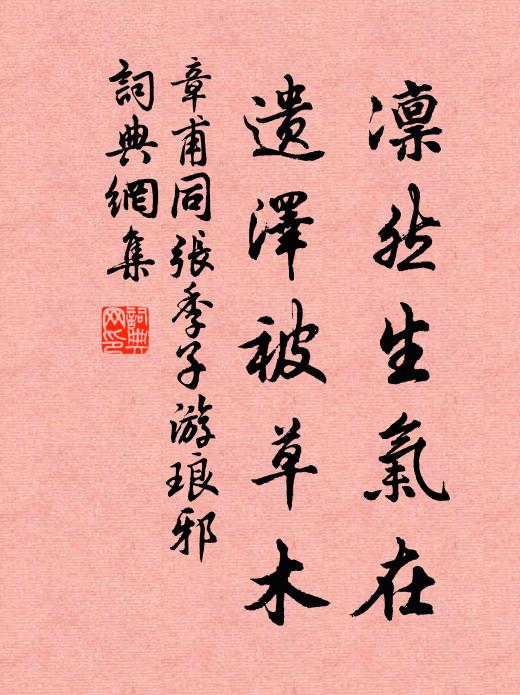 凛然生氣在
遗澤被草木
章甫同張季子游琅邪
詞典網集
詞典网印